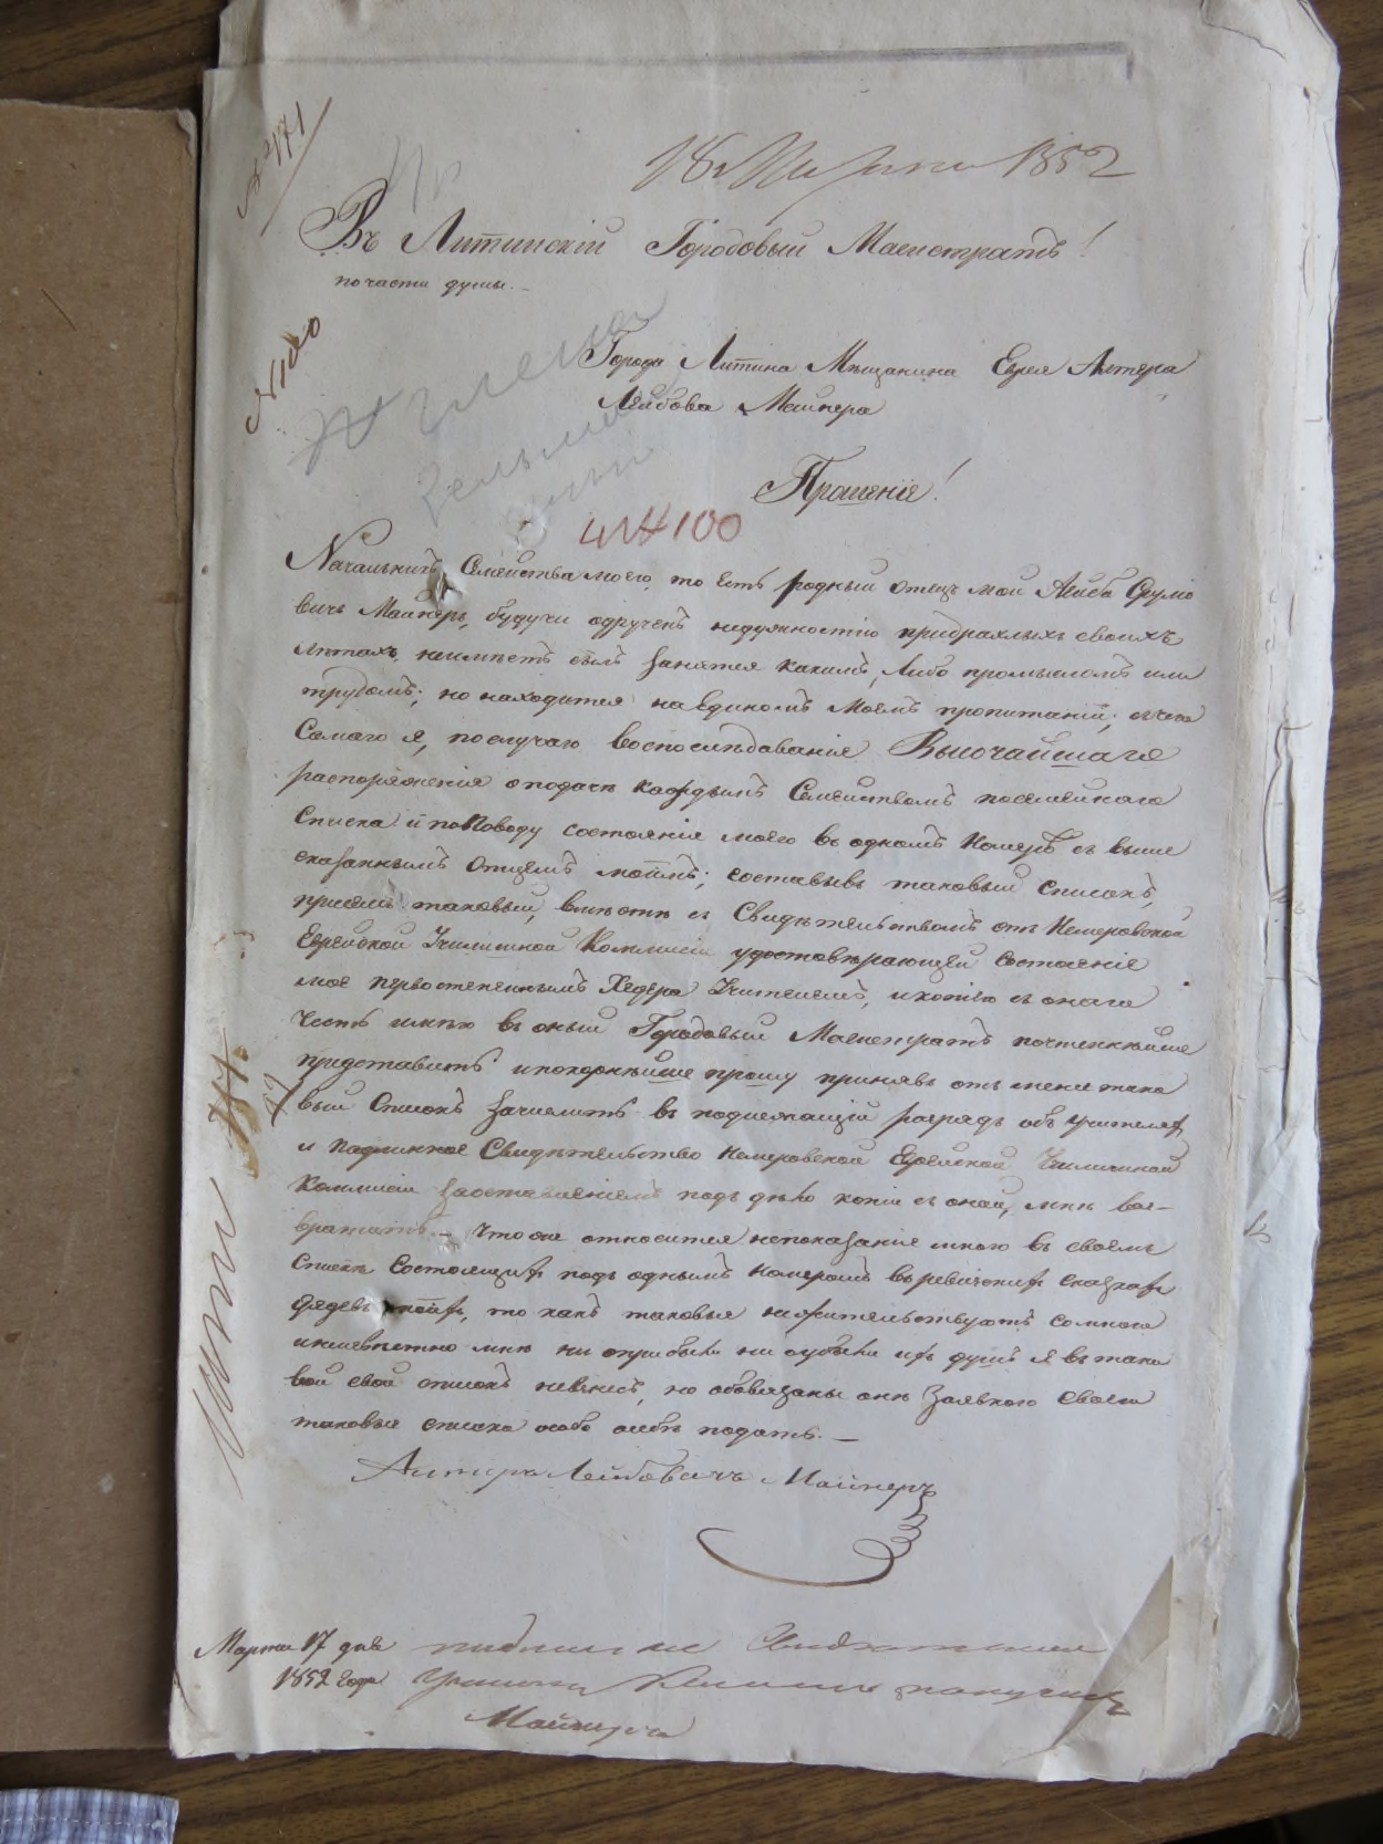 № 171
18 Марта 1852
Въ Литинскій Городовый Магистратъ!
по части думы. —
№ 100
Города Литина Мѣщанина Еврея Алтера
Лейбова Майнера
Прошеніе!
100
Начальникъ Семейства моего, то есть родный отецъ мой Лейба Сруло
вичъ Майнеръ, будучи одрученъ недужностію придряхлыхъ своихъ
лѣтахъ, неимѣетъ силъ занятся какимъ, либо промысломъ или
трудомъ; но находится на Единомъ моемъ пропитаніи; съ чего
Самаго я, по случаю воспослѣдованія Высочайшаго
распоряженія о подачи каждымъ Семействомъ посемейнаго
Списка и по Поводу состоянія моего въ одномъ Номерѣ съ выше
сказаннымъ Отцемъ моимъ; составывъ таковый списокъ,
присемъ таковый, вмѣстѣ съ Свидѣтельствомъ отъ Немеровской
Еврейской Училищной Коммисіи удостовѣряющей состояніе
мое первостепеннымъ Хедера Учителемъ, и копіею съ онаго
Честь имѣю въ оный Городовый Магистратъ почтеннѣйше
представить и покорнѣйше прошу принявъ отъ меня тако
вый Списокъ зачислить въ подлежащій разрядъ объ учителях
и подлинное Свидѣтельство Немеровской Еврейской Училищной
Коммисіи заоставленіемъ подъ дѣло копіи съ оной, мнѣ воз-
вратить. — Что же относится непоказаніе мною въ своемъ
Спискѣ Состоящих подъ однымъ номеромъ въ ревизских сказках
дядевъ моих, то какъ таковые нежительствуютъ со мною
и неизвѣстно мнѣ ни о прибыли ни о убыли их душъ я въ тако
вой свой списокъ невнесъ, но обовязаны онѣ за явкою своею
таковые списка особо отъ себѣ подать. —
Алтеръ Лейбовичъ Майнеръ
Марта 17 дня
1852 года
подлинное Свидѣтельство
получилъ
Майнеръ